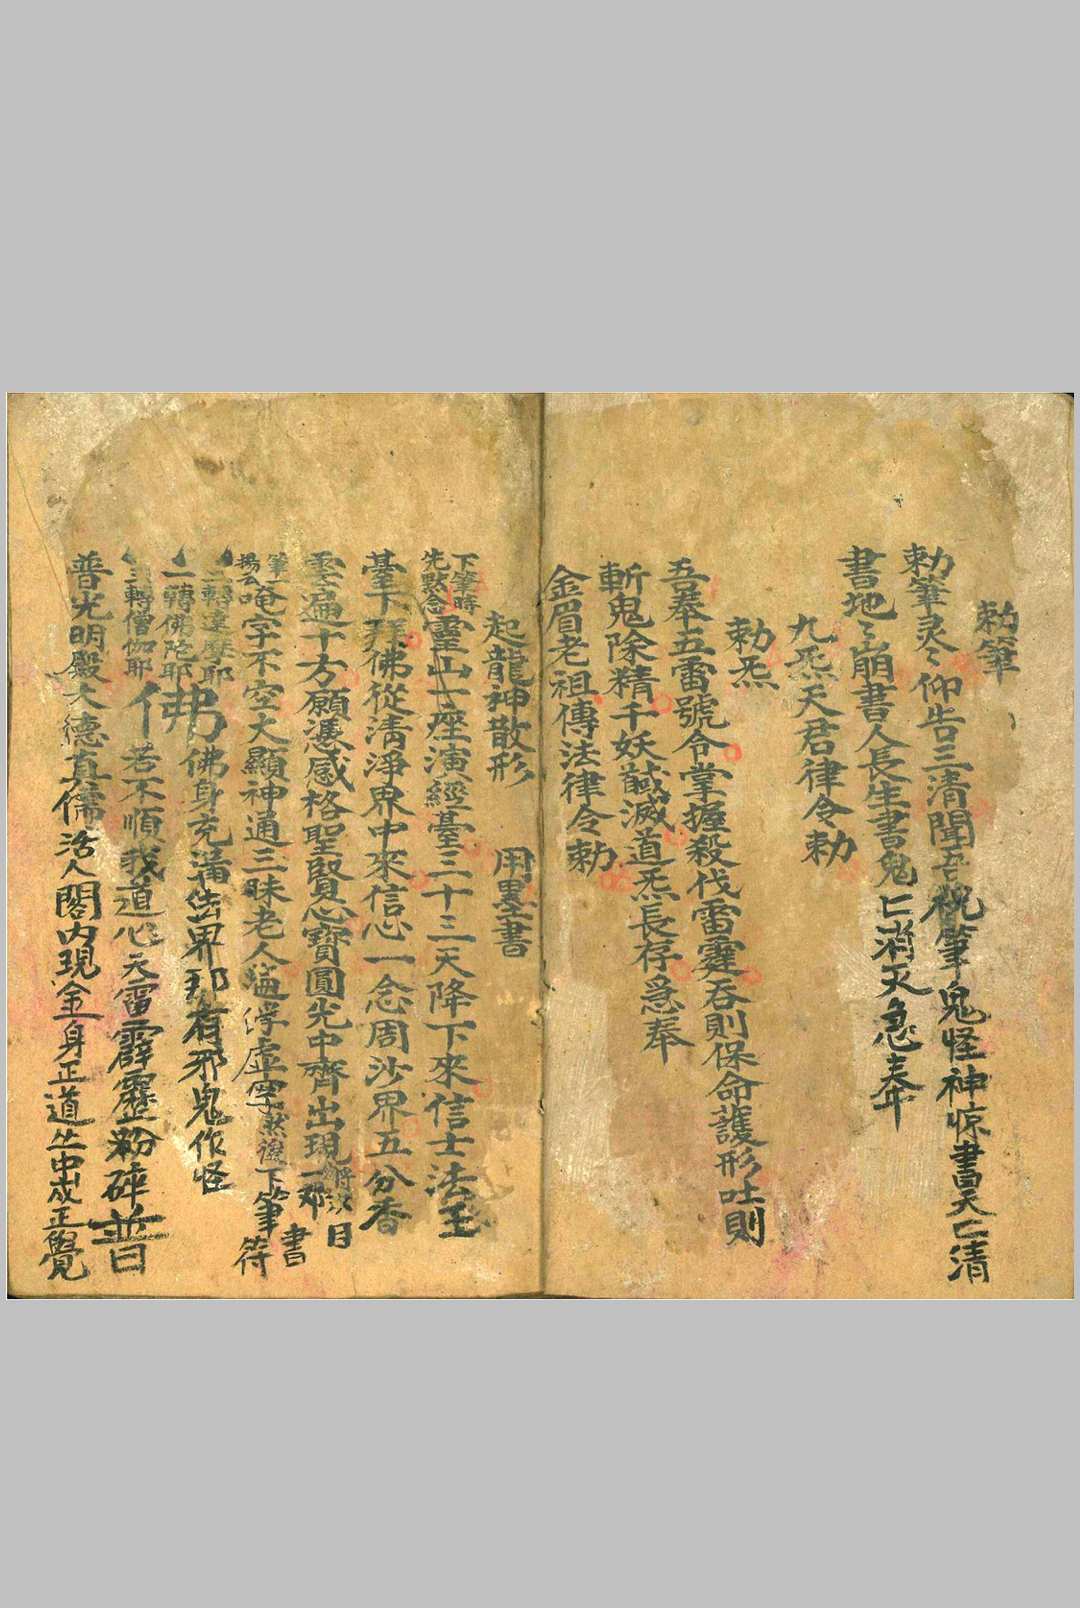 勅筆
勅筆灵〻仰告三清聞吾祝筆鬼怪神惊書天〻清
書地〻崩書人長生書鬼〻消灭急奉
九炁天君律令勅
勅炁
吾奉五雷號令掌握殺伐雷霆吞則保命護形吐則
斬鬼除精千妖馘滅道炁長存急奉
金眉老祖傳法律令勅
起龍神散形 用墨書
下筆時
先默念
靈山一座演經臺三十三天降下來信士法王
臺下拜佛從清淨界中來信心一念周沙界五分香
雲遍十方願憑感格聖賢心寶圓光中齊出現
目
筆一
揚云
唵字不空大顯神通三昧老人
浮虛字然後下筆書符
佛 佛身充滿法界 有邪鬼作怪
一轉佛陀耶
轉僧伽耶
若不順我道心天雷霹靂粉碎普
普光明殿大德真儒活人閣內現金身正道丛中成正覺